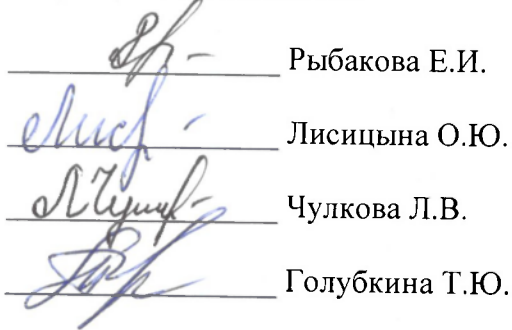 Рыбакова Е.И.
Лисицына О.Ю.
Чулкова Л.В.
Голубкина Т.Ю.